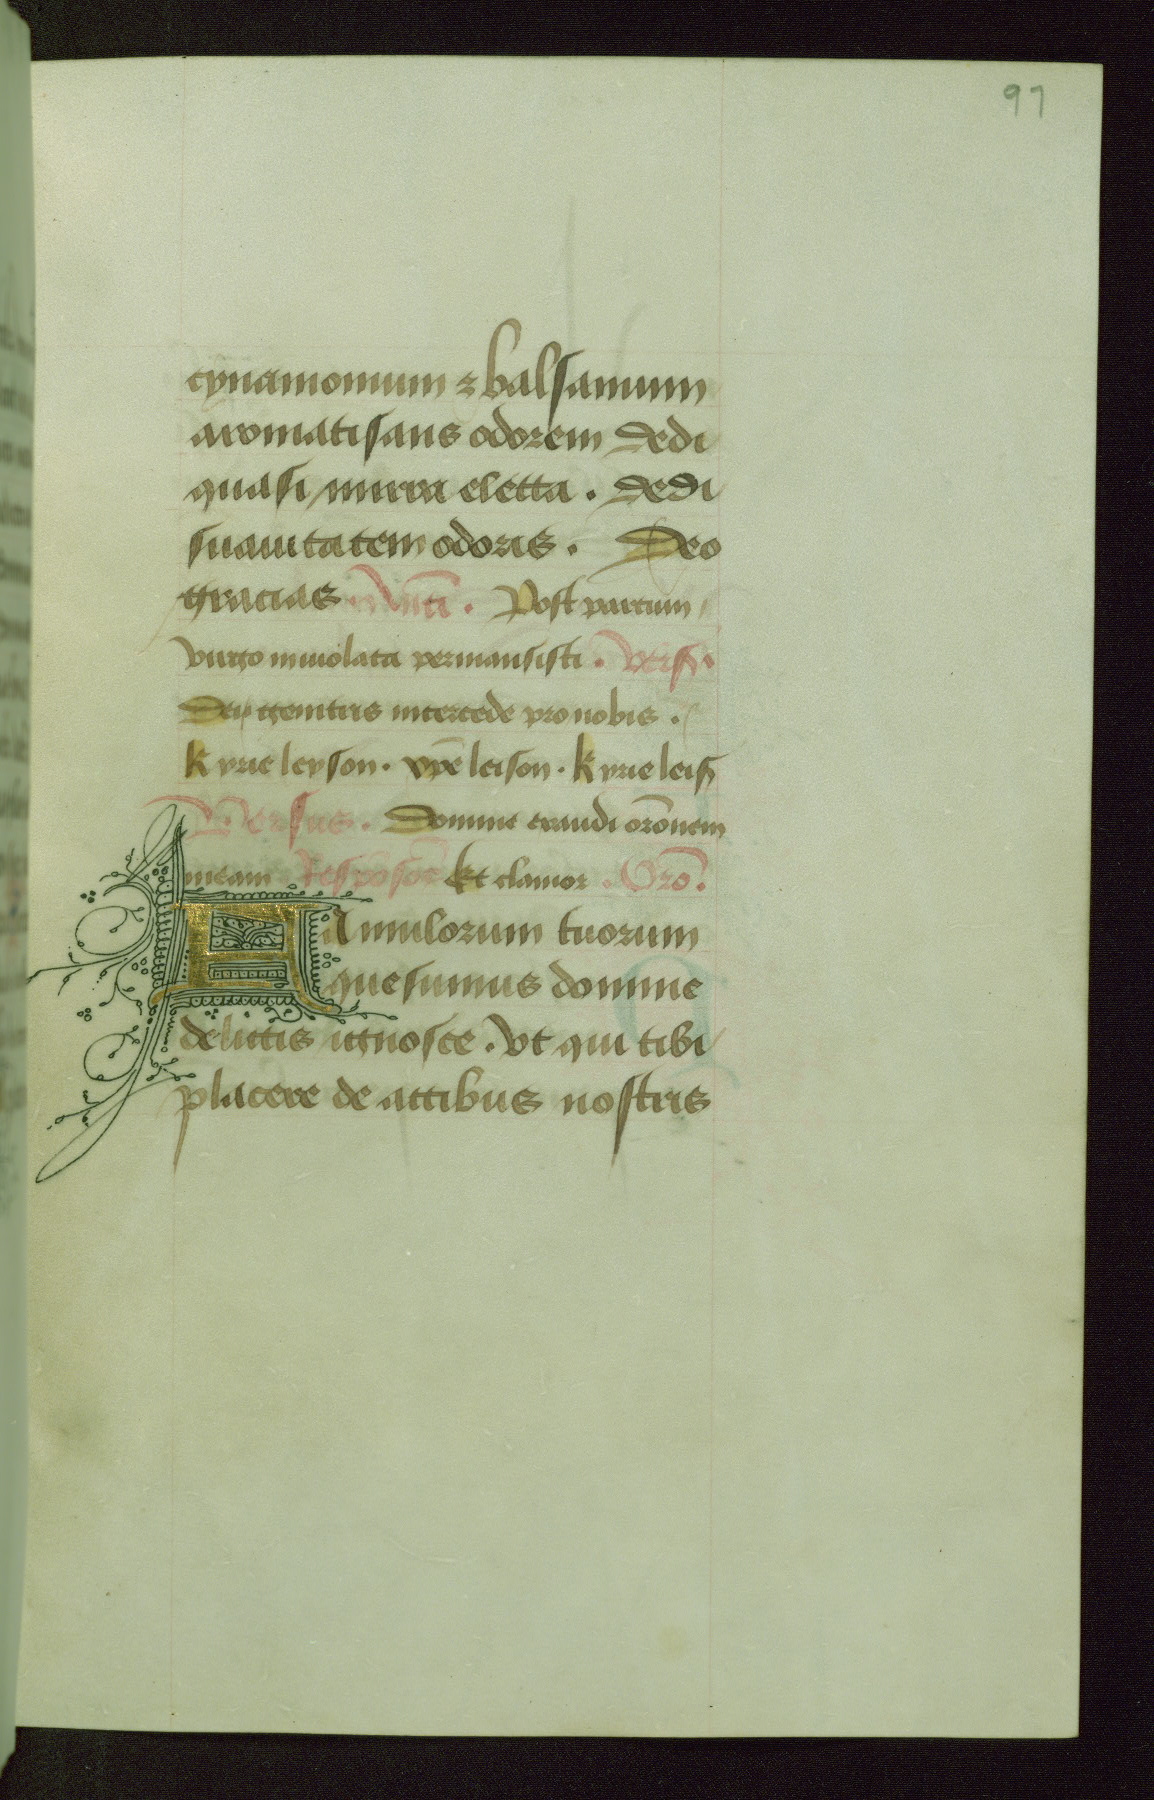 97
cynamomum ⁊ balsamum
aromatisans odorem dedi
quasi mirra eletta . dedi
suauitatem odoris . Deo
gracias . Post partum
virgo inuiolata permansisti . Versꝰ .
Dei genitrix intercede pro nobis .
Kyrie leyson . xp̄e leison . Kyrie leisō
Versus . Domine exaudi orōnem
meam Respōsor̄ Et clamor . Orō .
Famulorum tuorum
quesumus domine
delictis ignosce . vt qui tibi
placere de actibus nostris